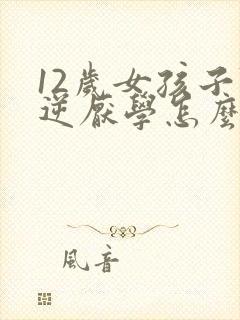 12歲女孩子
逆厭學怎麼
風音